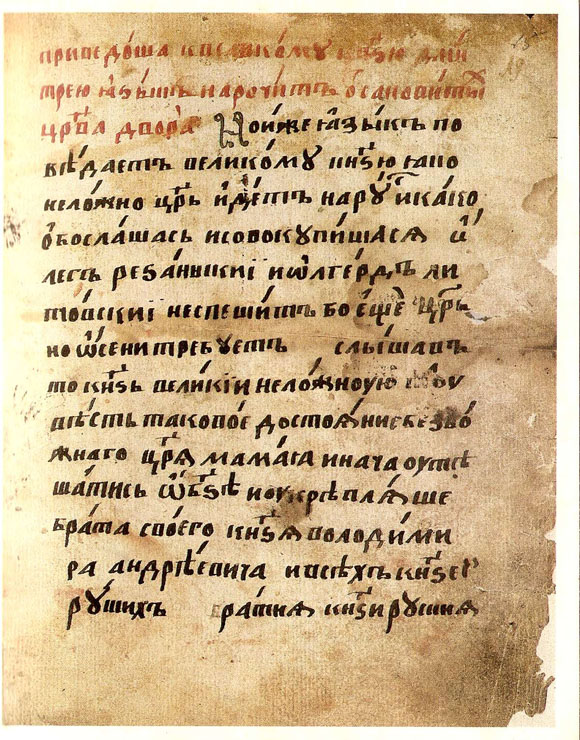 приведоша к великому кнѕю дми
трею ꙗзыкъ нарочитъ ѿ сановитыⷯ
цр҃ва двора Но иже ꙗзыкъ по
вѣдаетъ великомꙋ кнѕю ꙗко
неложно цр҃ь идетъ на рꙋⷭ и како
обослашасѧ и совокꙋпишасѧ и ѡ
легъ резаньскиі и ѡлгердъ ли
товскиі не спешитъ бо еще цр҃ь
но ѡсени требꙋетъ слышавъ
то кнѕь великіи неложнꙋю
вѣсть таковое достоꙗние безбо
жнаго цр҃ѧ мамаꙗ и нача оутѣ
шатись ѿ бг҃ѣ и оукреплѧше
брата своего кнѕѧ володими
ра андрѣевича и всѣхъ кнѕеи
рꙋшихъ братиѧ кнѕи рꙋшиѧ